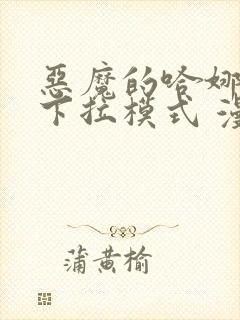 恶魔的哈娜
下拉模式 漫
蒲黄榆